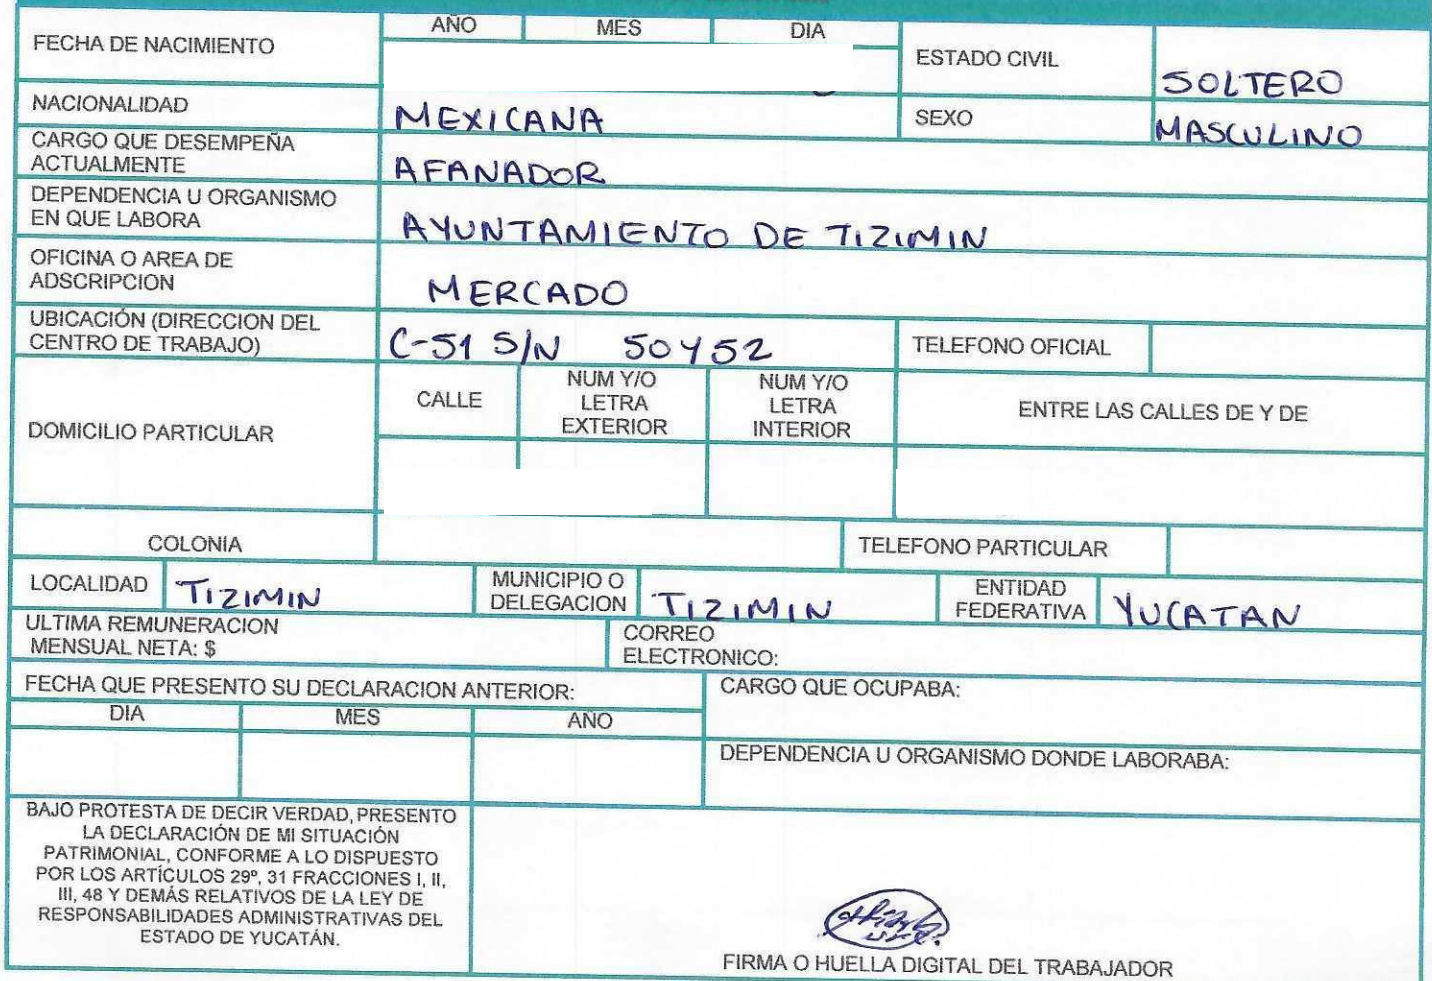 AÑO MES DIA
FECHA DE NACIMIENTO ESTADO CIVIL SOLTERO
NACIONALIDAD MEXICANA SEXO MASCULINO
CARGO QUE DESEMPEÑA
ACTUALMENTE AFANADOR
DEPENDENCIA U ORGANISMO
EN QUE LABORA AYUNTAMIENTO DE TIZIMIN
OFICINA O AREA DE
ADSCRIPCION MERCADO
UBICACIÓN (DIRECCION DEL
CENTRO DE TRABAJO) C-51 S/N 50 Y 52 TELEFONO OFICIAL
DOMICILIO PARTICULAR
CALLE
NUM Y/O
LETRA
EXTERIOR
NUM Y/O
LETRA
INTERIOR
ENTRE LAS CALLES DE Y DE
COLONIA TELEFONO PARTICULAR
LOCALIDAD TIZIMIN
MUNICIPIO O
DELEGACION TIZIMIN
ENTIDAD
FEDERATIVA YUCATAN
ULTIMA REMUNERACION
MENSUAL NETA: $
CORREO
ELECTRONICO:
FECHA QUE PRESENTO SU DECLARACION ANTERIOR:
DIA MES AÑO
CARGO QUE OCUPABA:
DEPENDENCIA U ORGANISMO DONDE LABORABA:
BAJO PROTESTA DE DECIR VERDAD, PRESENTO
LA DECLARACIÓN DE MI SITUACIÓN
PATRIMONIAL, CONFORME A LO DISPUESTO
POR LOS ARTÍCULOS 29º, 31 FRACCIONES I, II,
III, 48 Y DEMÁS RELATIVOS DE LA LEY DE
RESPONSABILIDADES ADMINISTRATIVAS DEL
ESTADO DE YUCATÁN.
FIRMA O HUELLA DIGITAL DEL TRABAJADOR